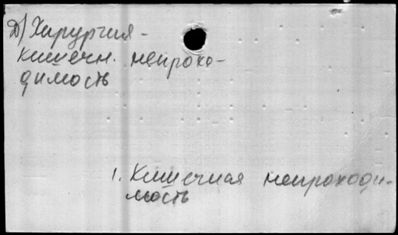 Д) Хирургия -
кишечн. непрохо-
димость
1. Кишечная непроходи-
мость